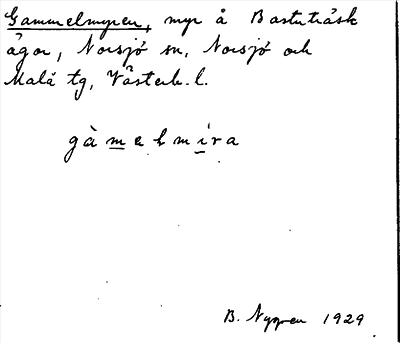 Gammelmyren, myr å Bastuträsk
ägor, Norsjö sn, Norsjö och
Malå tg, Västerb. l.
gàmelmíra
B. Nygren 1929